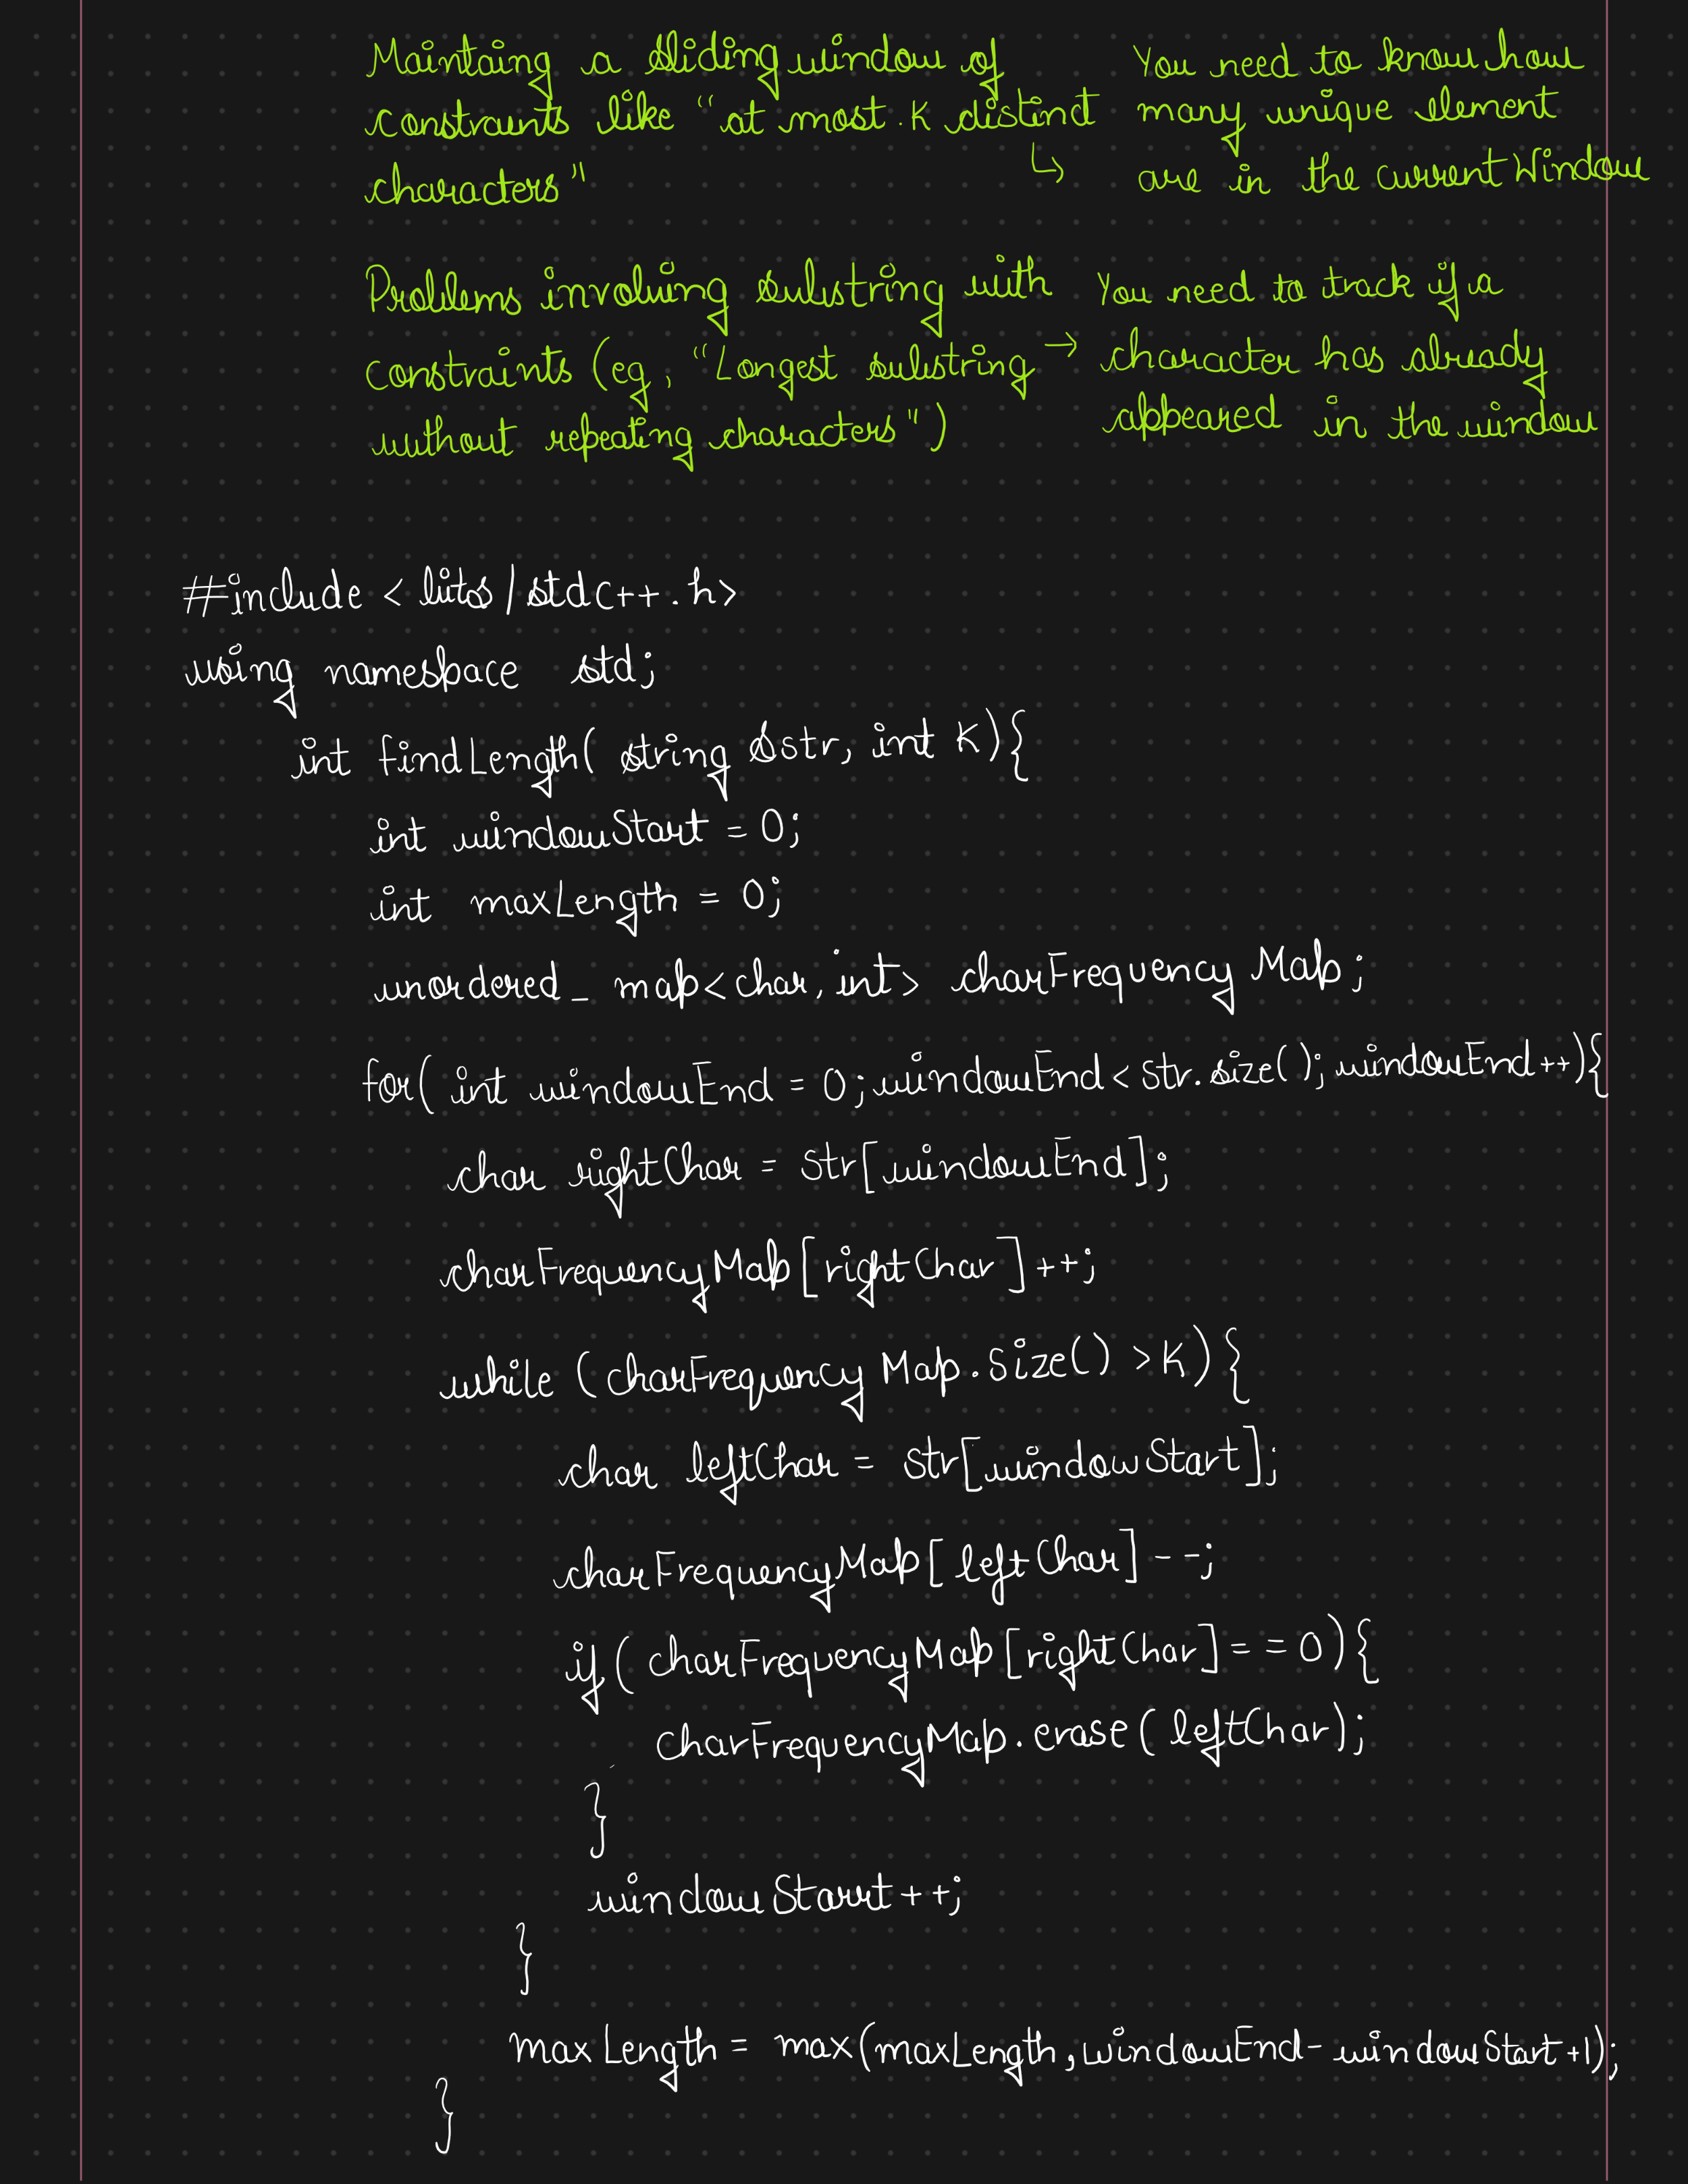 Maintaing a sliding window of
constraints like "at most K distinct
characters"
↳ You need to know how
many unique element
are in the current Window
Problems involving substring with
constraints (eg, "Longest substring
without repeating characters")
→ You need to track if a
character has already
appeared in the window
#include <bits/stdc++.h>
using namespace std;
int findLength( string &str, int K){
int windowStart = 0;
int maxLength = 0;
unordered_map<char, int> charFrequencyMap;
for( int windowEnd = 0; windowEnd < str.size(); windowEnd++){
char rightChar = str[windowEnd];
charFrequencyMap[rightChar]++;
while (charFrequencyMap.size() >K){
char leftChar = str[windowStart];
charFrequencyMap[leftChar]--;
if( charFrequencyMap[rightChar]==0){
charFrequencyMap.erase(leftChar);
}
windowStart++;
}
maxLength = max(maxLength, windowEnd-windowStart+1);
}